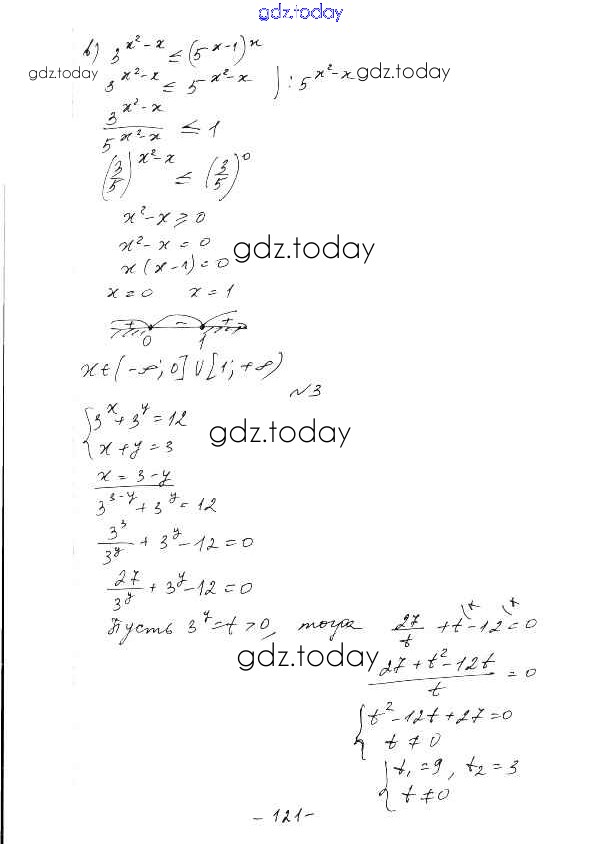 gdz.today
в) 3^(x²-x) ≤ (5^(x-1))^x
gdz.today
3^(x²-x) ≤ 5^(x²-x) ) : 5^(x²-x)
gdz.today
3^(x²-x) / 5^(x²-x) ≤ 1
(3/5)^(x²-x) ≤ (3/5)^0
x²-x ≥ 0
x²-x = 0
gdz.today
x(x-1)=0
x=0 x=1
+ - +
0 1
x∈(-∞; 0]∪[1; +∞)
№3
{3^x+3^y=12
{x+y=3
gdz.today
x=3-y
3^(3-y)+3^y=12
3³/3^y + 3^y-12=0
27/3^y + 3^y-12=0
Пусть 3^y=t>0, тогда 27/t +t-12=0
gdz.today
(27+t²-12t)/t =0
{t²-12t+27=0
{t≠0
{t₁=9, t₂=3
{t≠0
-121-